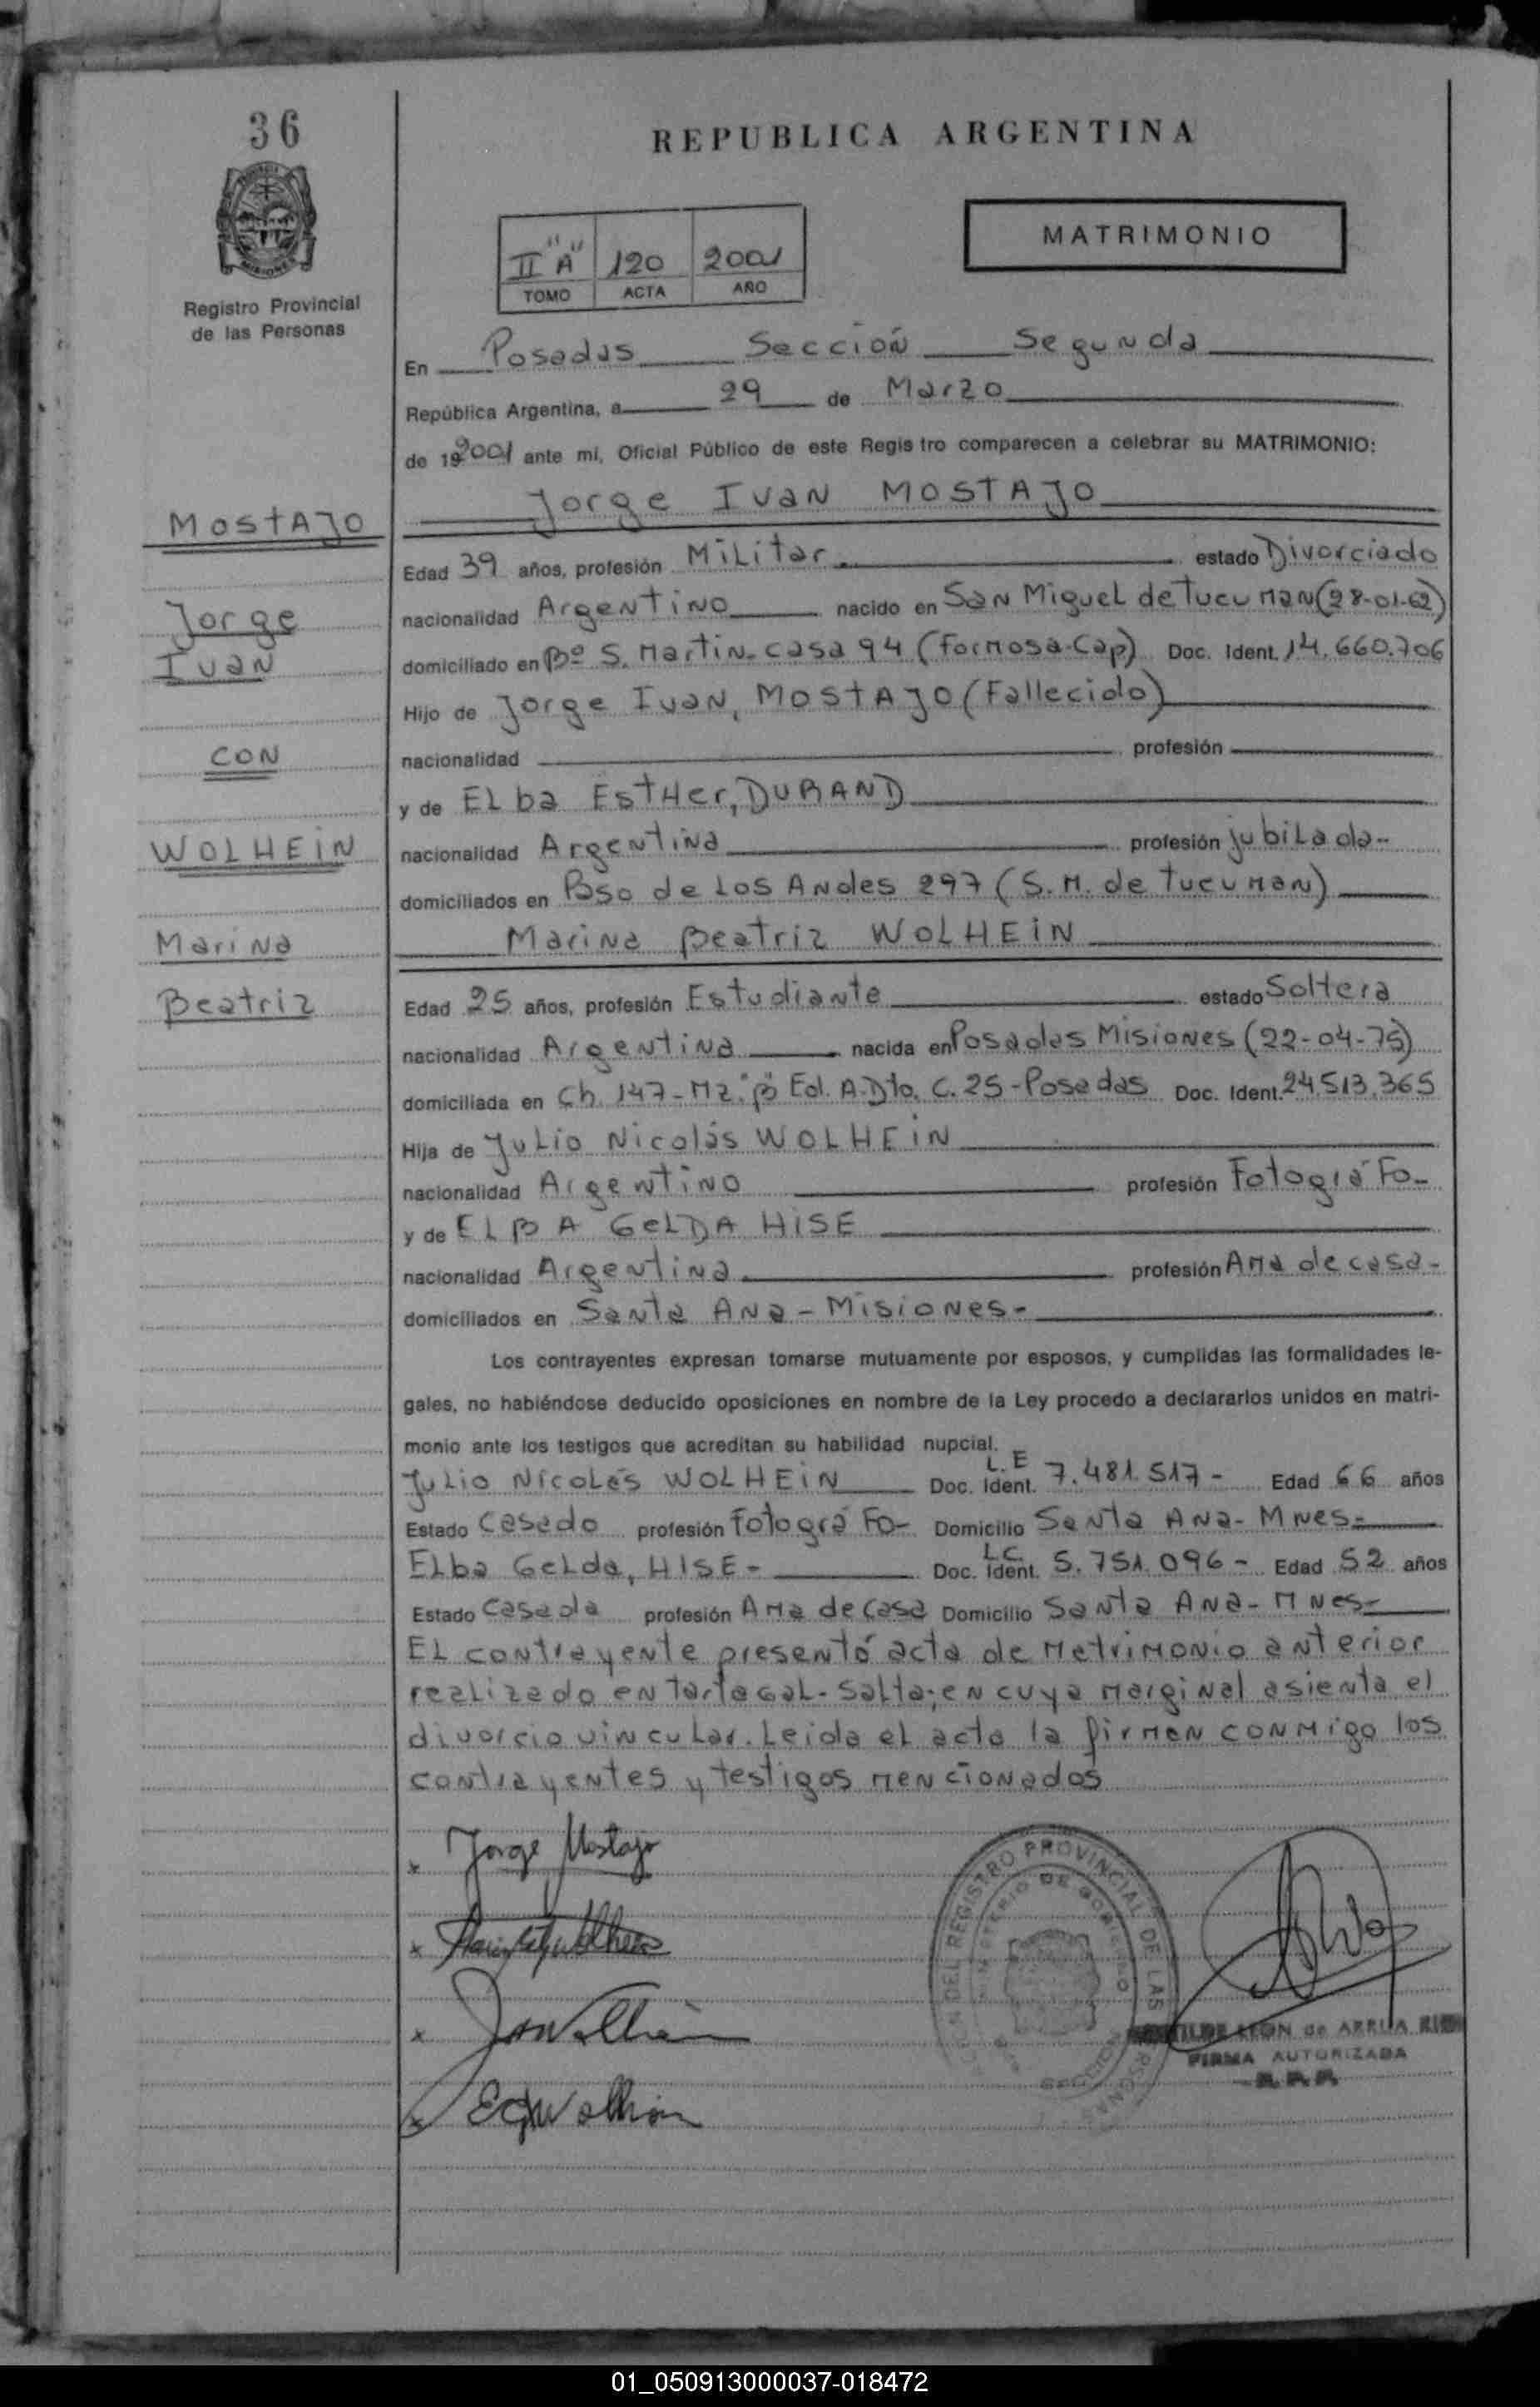 36
REPUBLICA ARGENTINA
MATRIMONIO
II "A" 120 2001
TOMO ACTA AÑO
Registro Provincial
de las Personas
En Posadas Sección Segunda
República Argentina, a 29 de Marzo
de 192001 ante mi, Oficial Público de este Regis tro comparecen a celebrar su MATRIMONIO:
Jorge Ivan MOSTAJO
MOSTAJO
Edad 39 años, profesión Militar estado Divorciado
Jorge
nacionalidad Argentino nacido en San Miguel de Tucuman (28-01-62)
Ivan
domiciliado en Bº S. Martin. casa 94 (Formosa-Cap) Doc. Ident. 14.660.706
Hijo de Jorge Ivan, MOSTAJO (Fallecido)
CON
nacionalidad profesión
y de Elba Esther, DURAND
WOLHEIN
nacionalidad Argentina profesión jubilada-
domiciliados en Paso de Los Andes 297 (S.M. de Tucuman)
Marina
Marina Beatriz WOLHEIN
Beatriz
Edad 25 años, profesión Estudiante estado Soltera
nacionalidad Argentina nacida en Posadas Misiones (22-04-75)
domiciliada en Ch. 147-Mz. "B" Ed. A. Dto. C. 25-Posadas Doc. Ident. 24.513.365
Hija de Julio Nicolás WOLHEIN
nacionalidad Argentino profesión Fotográfo-
y de ELBA GELDA HISE
nacionalidad Argentina profesión Ama de casa-
domiciliados en Santa Ana-Misiones-
Los contrayentes expresan tomarse mutuamente por esposos, y cumplidas las formalidades le-
gales, no habiéndose deducido oposiciones en nombre de la Ley procedo a declararlos unidos en matri-
monio ante los testigos que acreditan su habilidad nupcial.
Julio Nicolás WOLHEIN Doc. Ident. L.E 7.481.517- Edad 66 años
Estado Casado profesión fotográfo- Domicilio Santa Ana-Mnes-
Elba Gelda, HISE- Doc. Ident. LC 5.751.096- Edad 52 años
Estado Casada profesión Ama de casa Domicilio Santa Ana-Mnes-
El contrayente presentó acta de Matrimonio anterior
realizado en Tartagal-Salta; en cuya marginal asienta el
divorcio vincular. Leida el acta la firman conmigo los
contrayentes y testigos mencionados
x Jorge Mostajo
x
x
x EGWolhein
REGISTRO PROVINCIAL DE LAS PERSONAS
MINISTERIO DE GOBIERNO
MISIONES
LEON de ARRUA
FIRMA AUTORIZADA
R.P.P.
01_050913000037-018472